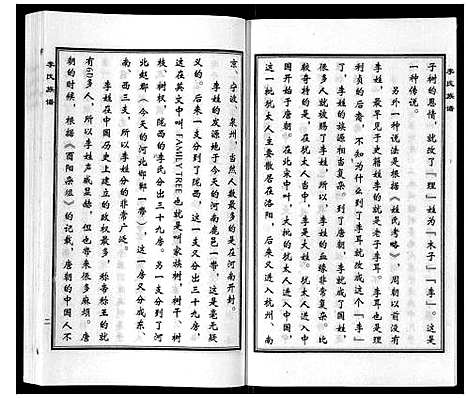 李氏族谱
子树的恩情，就改了「理」姓为「木子」—「李」。这是
一种传说。
另外一种说法是根据《姓氏考略》，周朝以前没有
李姓，最早见于史籍姓李的就是老子李耳。李耳也是理
利贞的后裔，不知为什么到了李耳就改成这个「李」
了，李姓的族源很复杂。到了唐朝，李就成了国姓，
很多人就被赐了李姓，所以，李姓的血缘非常复杂。比
较奇特的是，李姓中还有一支是犹太人。犹太人进入中
国开始于唐朝。在北宋中叶，大批的犹太人进入中国。
这一批犹太人主要散居在洛阳，后来又进入杭州、南
京、宁波、泉州，当然人数最多的是在河南开封。
李姓的发源地于今天的河南鹿邑一带，这是毫无疑
义的。后来一支分到了陇西，这一支又分出三十九房，
这在英文中叫"FAMILY TREE"也就是叫家族树，树干、树
枝、树杈，陇西的李氏分出三十九房。另一支分到了河
北赵郡（今天的河北邯郸一带），这一房又分成东、
南、西三支，所以李姓分的非常广泛。
李姓在中国历史上建立的政权最多，称帝称王的就
有60多人，所以李姓声威显赫，但也带来很多麻烦。唐
朝的时候，根据《酉阳杂俎》的记载，唐朝的中国人不
李氏族谱
二